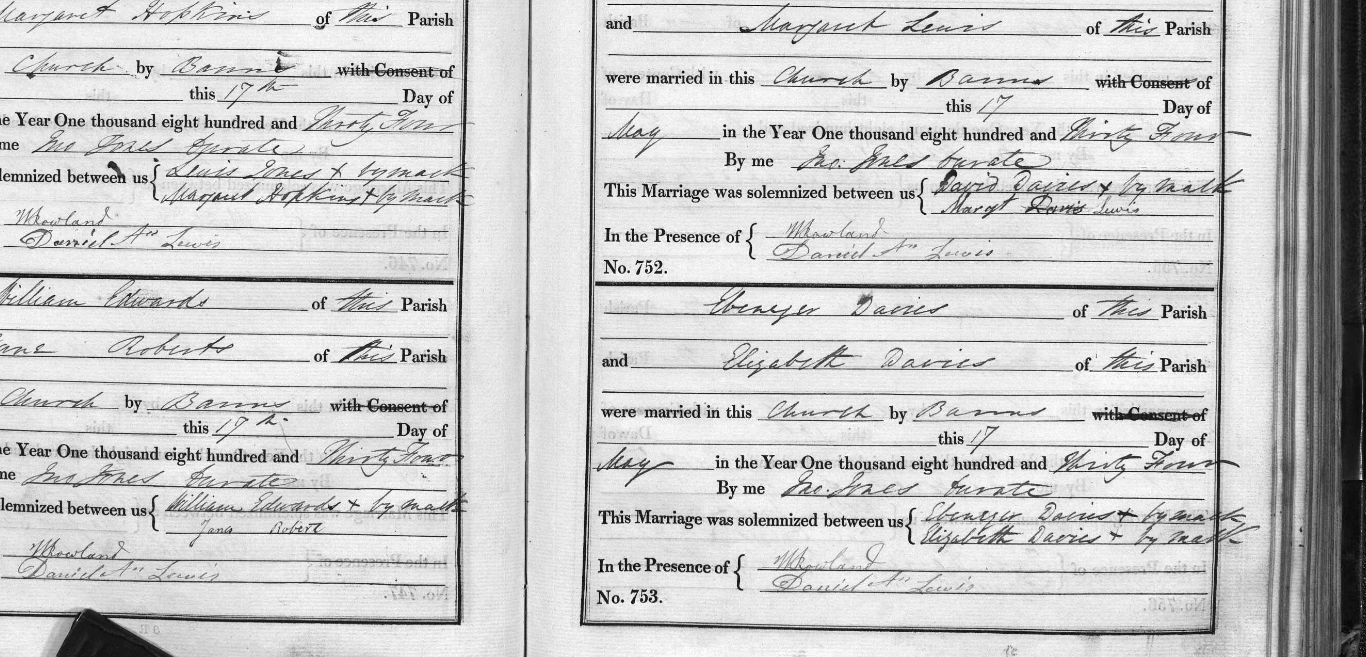 Margaret Hopkins of this Parish
Church by Banns with Consent of
this 17th Day of
he Year One thousand eight hundred and Thirty Four
me Jno Jones Curate
lemnized between us { Lewis Jones + by mark
Margaret Hopkins + by mark
WRowland
Daniel An Lewis
William Edwards of this Parish
ane Roberts of this Parish
Church by Banns with Consent of
this 17th Day of
he Year One thousand eight hundred and Thirty Four
me Jno Jones Curate
lemnized between us { William Edwards + by mark
Jana Robert
WRowland
Daniel An Lewis
and Margaret Lewis of this Parish
were married in this Church by Banns with Consent of
this 17 Day of
May in the Year One thousand eight hundred and Thirty Four
By me Jno. Jones Curate
This Marriage was solemnized between us { David Davies + by mark
Margt Davis Lewis
In the Presence of { WRowland
Daniel An Lewis
No. 752.
Ebenezer Davies of this Parish
and Elizabeth Davies of this Parish
were married in this Church by Banns with Consent of
this 17 Day of
May in the Year One thousand eight hundred and Thirty Four
By me Jno. Jones Curate
This Marriage was solemnized between us { Ebenezer Davies + by mark
Elizabeth Davies + by mark
In the Presence of { WRowland
Daniel An Lewis
No. 753.